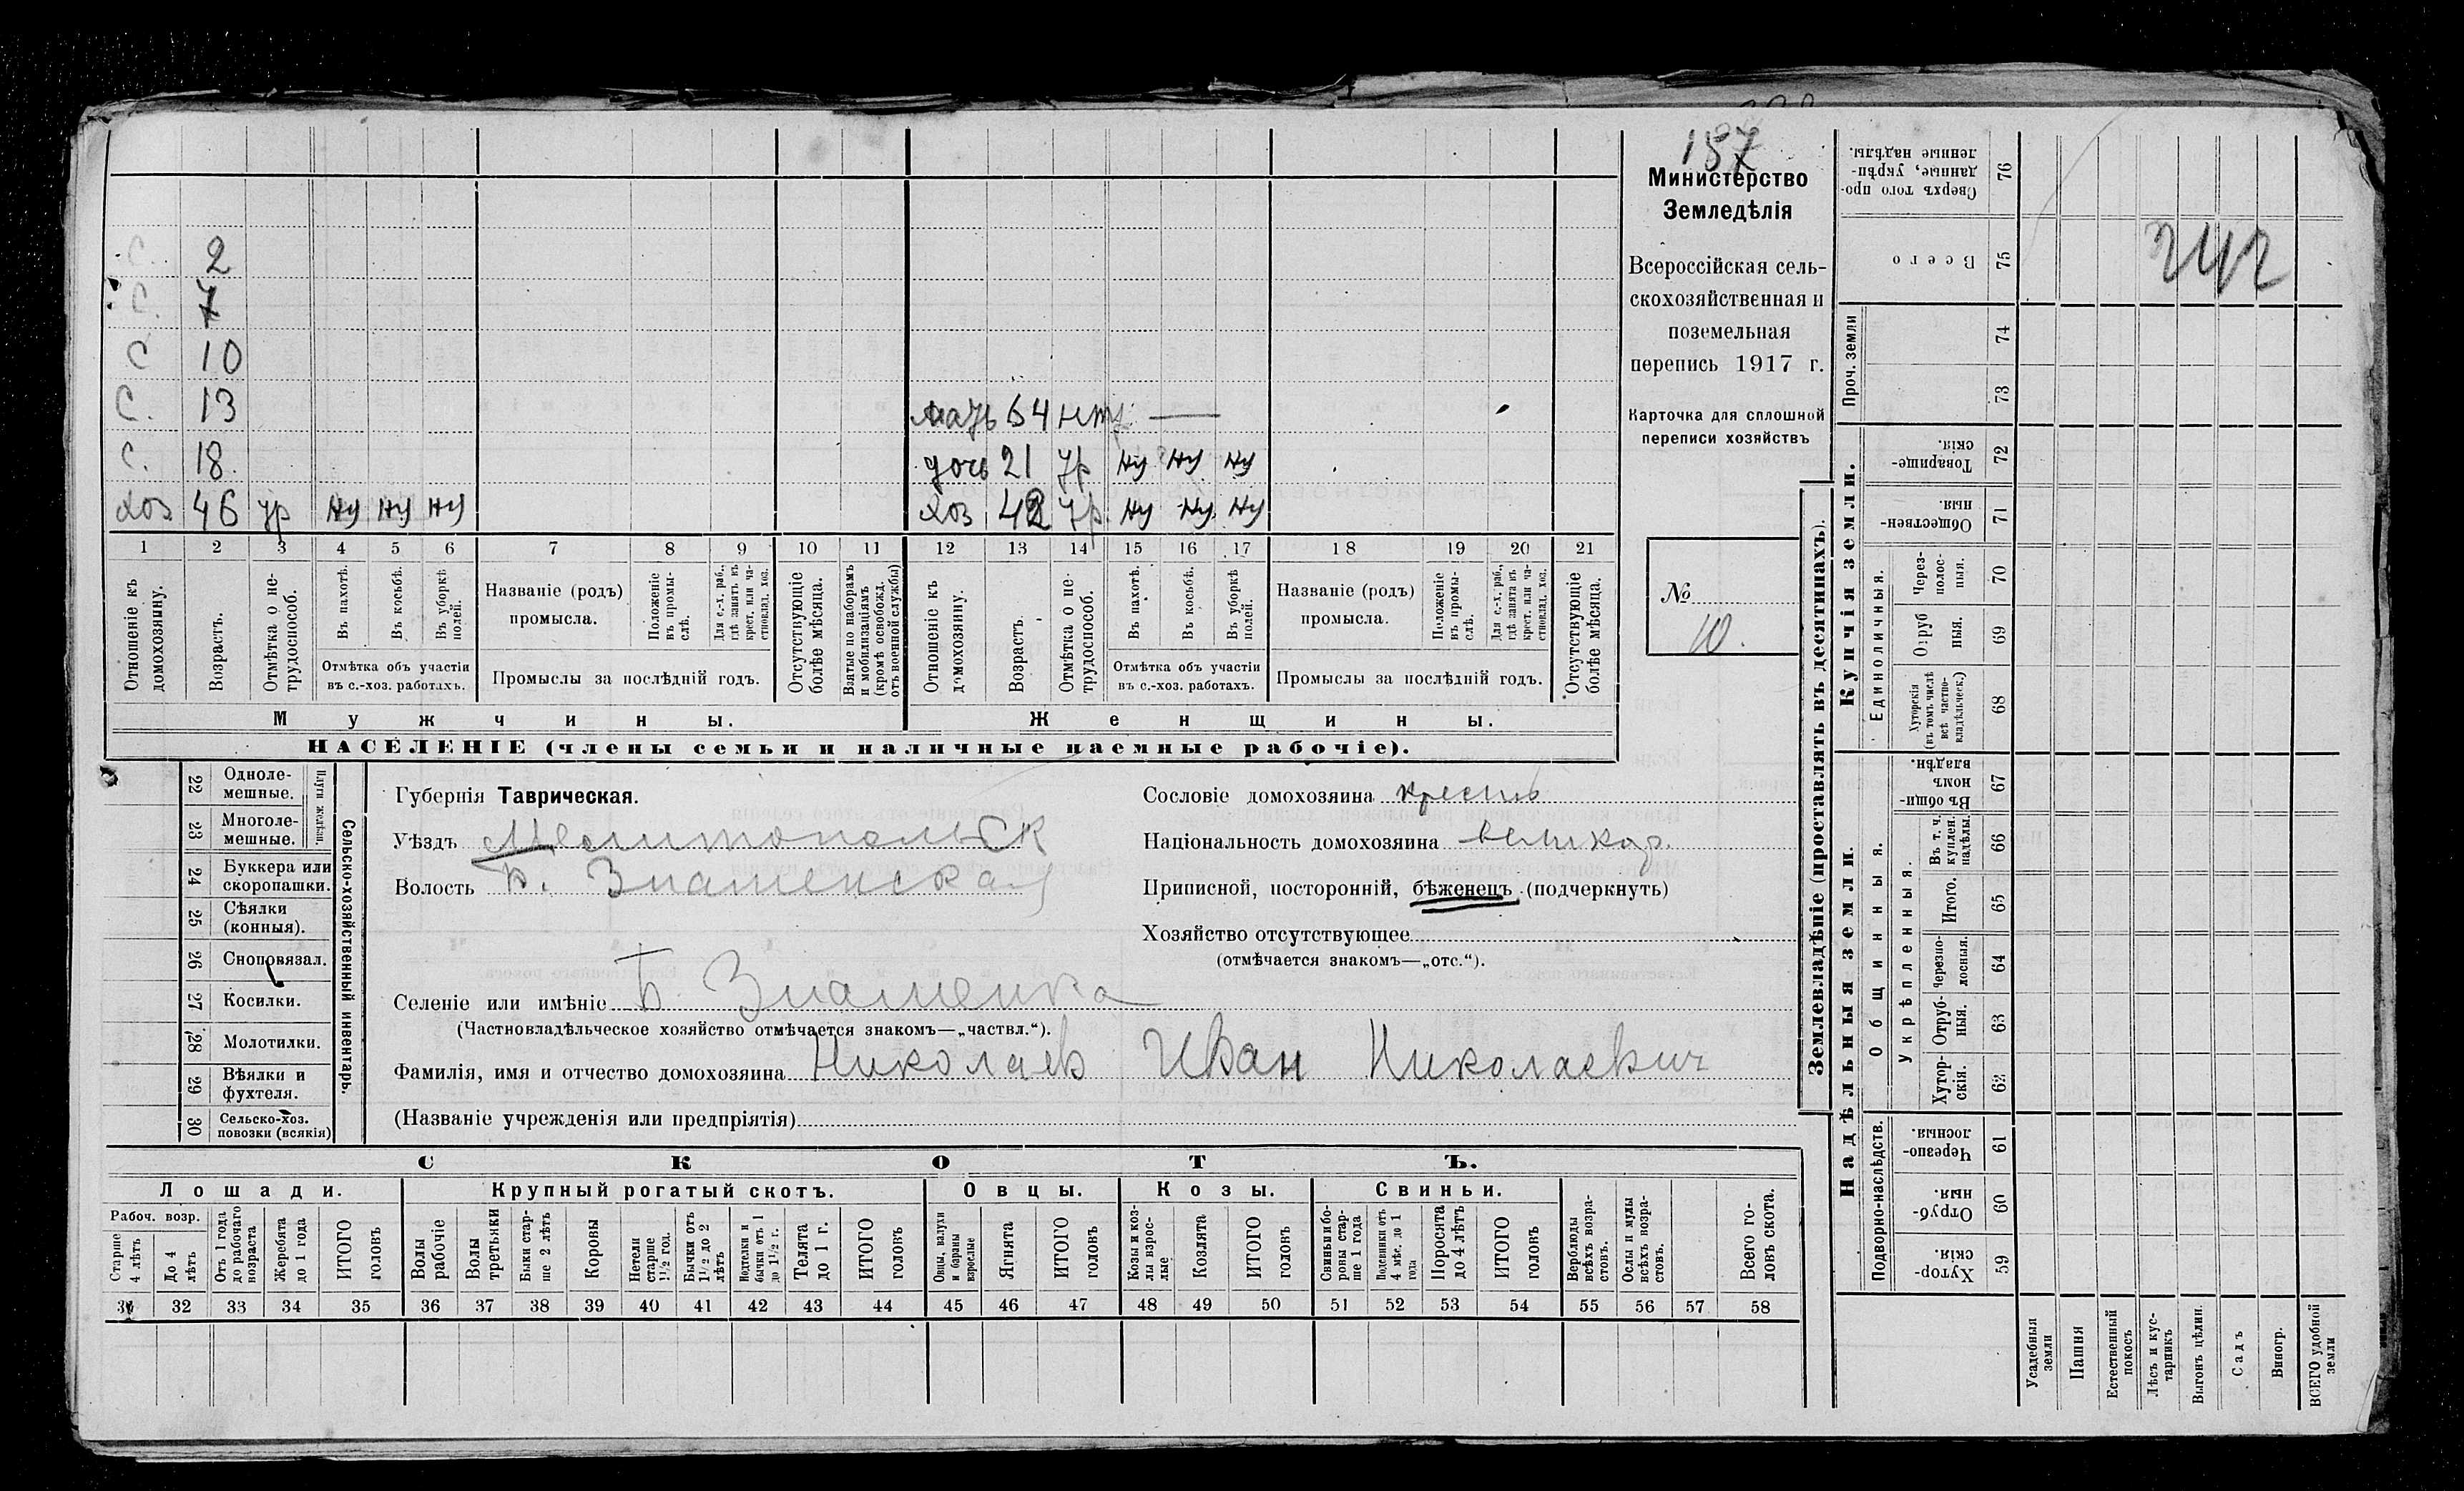 187
Министерство
Земледѣлія
Всероссійская сель-
скохозяйственная и
поземельная
перепись 1917 г.
Карточка для сплошной
переписи хозяйствъ
№
10.
С. 2
С. 7
С 10
С. 13 мать 64 нт —
С. 18. дочь 21 ур ну ну ну
Хоз 46 ур ну ну ну Хоз 42 ур. ну ну ну
1 2 3 4 5 6 7 8 9 10 11 12 13 14 15 16 17 18 19 20 21
Отношеніе къ домохозяину.
Возрастъ.
Отмѣтка о не-трудоспособ.
Въ пахотѣ.
Въ косьбѣ.
Въ уборкѣ полей.
Отмѣтка объ участіи
въ с.-хоз. работахъ.
Названіе (родъ)
промысла.
Положеніе въ промы-слѣ.
Для с.-х. раб., гдѣ занятъ въ крест. или ча-стновлад. хоз.
Промыслы за послѣдній годъ.
Отсутствующіе болѣе мѣсяца.
Взятые по наборамъ и мобилизаціямъ (кромѣ освобожд. отъ военной службы)
Отношеніе къ домохозяину.
Возрастъ.
Отмѣтка о не-трудоспособ.
Въ пахотѣ.
Въ косьбѣ.
Въ уборкѣ полей.
Отмѣтка объ участіи
въ с.-хоз. работахъ.
Названіе (родъ)
промысла.
Положеніе въ промы-слѣ.
Для с.-х. раб., гдѣ занята въ крест. или ча-стновлад. хоз.
Промыслы за послѣдній годъ.
Отсутствующіе болѣе мѣсяца.
Мужчины. Женщины.
НАСЕЛЕНІЕ (члены семьи и наличные наемные рабочіе).
22 Одноле-мешные.
23 Многоле-мешные.
Плуги желѣзн.
24 Буккера или скоропашки.
25 Сѣялки (конныя).
26 Сноповязал.
27 Косилки.
28 Молотилки.
29 Вѣялки и фухтеля.
30 Сельско-хоз. повозки (всякія)
Сельско-хозяйственный инвентарь.
Губернія Таврическая.
Уѣздъ Мелитопольск
Волость Б. Знаменская
Сословіе домохозяина крестьь
Національность домохозяина великор.
Приписной, посторонній, бѣженецъ (подчеркнуть)
Хозяйство отсутствующее
(отмѣчается знакомъ—„отс.“).
Селеніе или имѣніе Б. Знаменка
(Частновладѣльческое хозяйство отмѣчается знакомъ—„частвл.“).
Фамилія, имя и отчество домохозяина Николаев Иван Николаевич
(Названіе учрежденія или предпріятія)
СКОТЪ.
Лошади. Крупный рогатый скотъ. Овцы. Козы. Свиньи.
Рабоч. возр.
Старше 4 лѣтъ
До 4 лѣтъ
Отъ 1 года до рабочаго возраста
Жеребята до 1 года
ИТОГО головъ
Волы рабочіе
Волы третьяки
Быки стар-ше 2 лѣтъ
Коровы
Нетели старше 1½ год.
Бычки отъ 1½ до 2 лѣтъ
Подтелки и бычки отъ 1 до 1½ г.
Телята до 1 г.
ИТОГО головъ
Овцы, валухи и бараны взрослые
Ягнята
ИТОГО головъ
Козы и коз-лы взрос-лые
Козлята
ИТОГО головъ
Свиньи и бо-ровы стар-ше 1 года
Подсвинки отъ 4 мѣс. до 1 года
Поросята до 4 лѣтъ
ИТОГО головъ
Верблюды всѣхъ возра-стовъ.
Ослы и мулы всѣхъ возра-стовъ.
Всего го-ловъ скота.
31 32 33 34 35 36 37 38 39 40 41 42 43 44 45 46 47 48 49 50 51 52 53 54 55 56 57 58
Землевладѣніе (проставлять въ десятинахъ).
Надѣльныя земли. Купчія земли. Проч. земли
Подворно-наслѣдств.
Общинныя.
Укрѣпленныя.
Единоличныя.
Хутор-скія. 59
Отруб-ныя. 60
Черезпо-лосныя. 61
Хутор-скія. 62
Отруб-ныя. 63
Черезпо-лосныя. 64
Итого. 65
Въ т. ч. куплен. надѣлы. 66
Въ общи-номъ владѣн. 67
Хуторскія (въ томъ числѣ всѣ частно-владѣльческ.) 68
Отруб-ныя. 69
Через-полос-ныя. 70
Обществен-ныя. 71
Товарище-скія. 72
73
74
Всего 75
Сверхъ того про-данные, укрѣп-ленные надѣлы. 76
242
Усадебныя земли
Пашня
Естественный покосъ
Лѣсъ и кус-тарникъ
Выгонъ цѣлин.
Садъ
Виногр.
ВСЕГО удобной земли